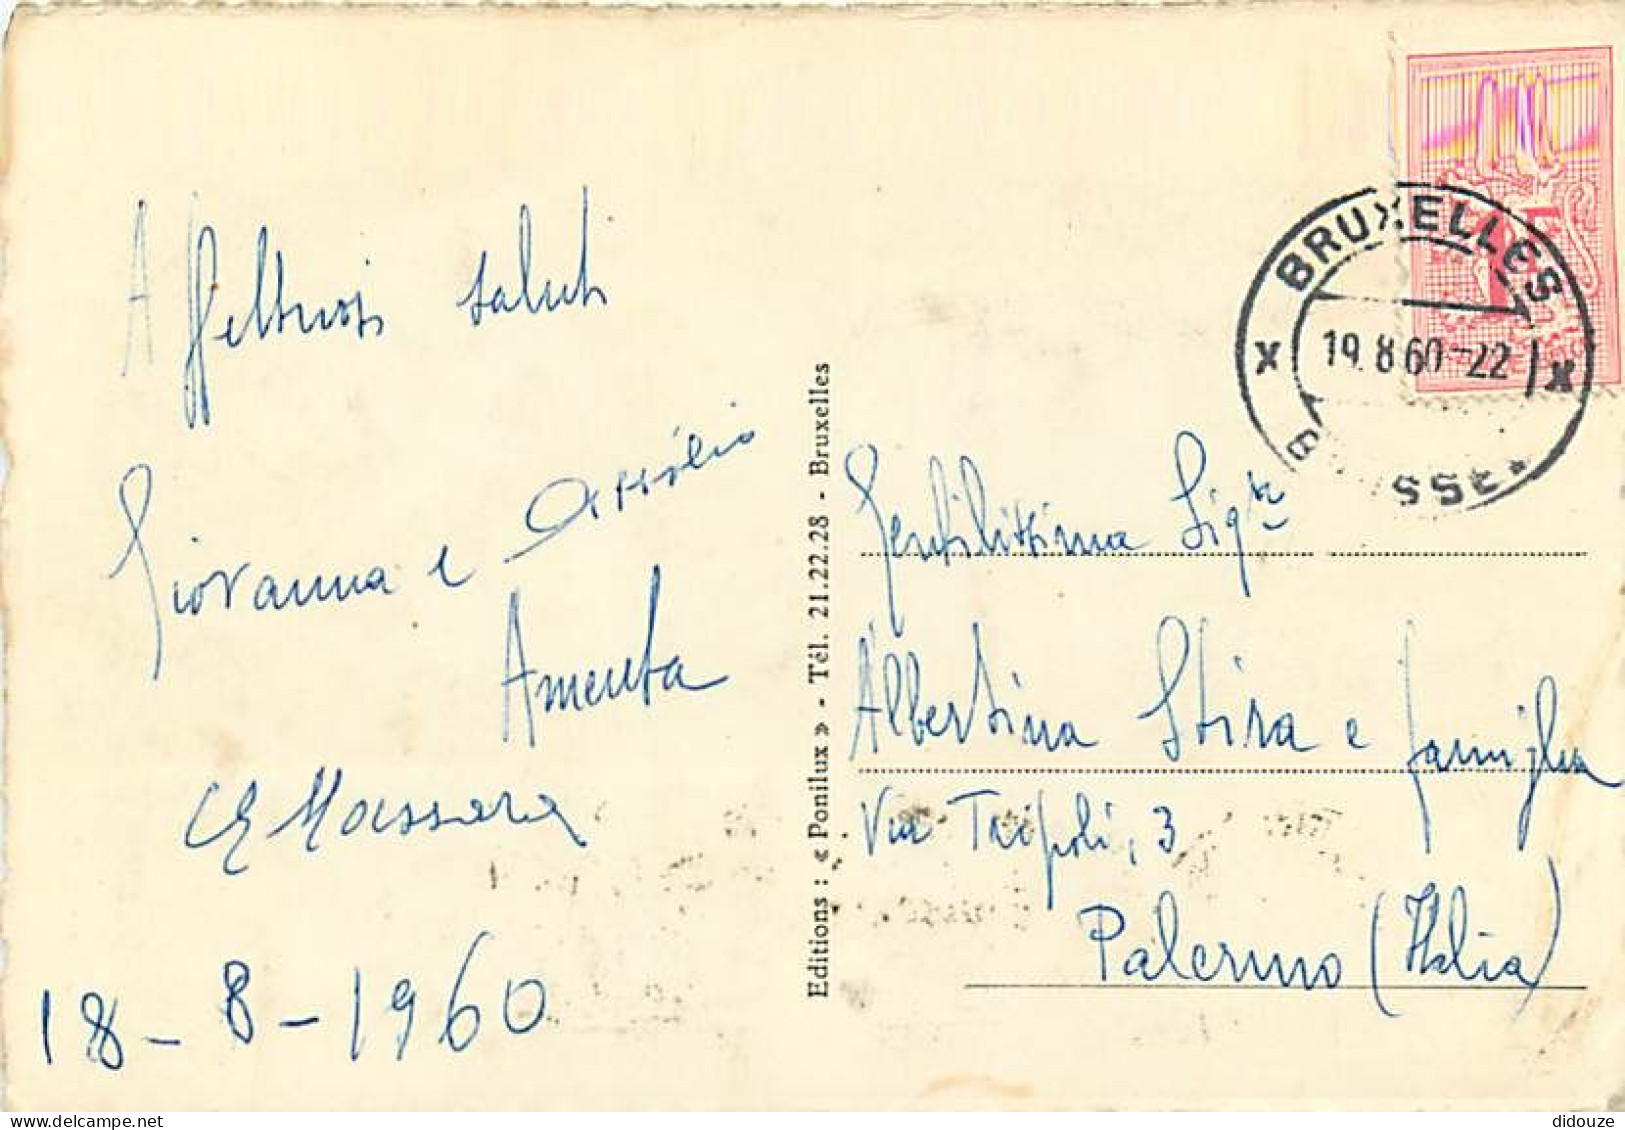 Affettuosi saluti
Giovanna e
Amenta
Massara
18-8-1960
Editions : « Ponilux » - Tél. 21.22.28 - Bruxelles
BRUXELLES
x 19.8.60-22 x
Gentilissima Sig.ra
Albertina Stira e famiglia
Via Tripoli, 3
Palermo (Italia)
delcampe.net
didouze